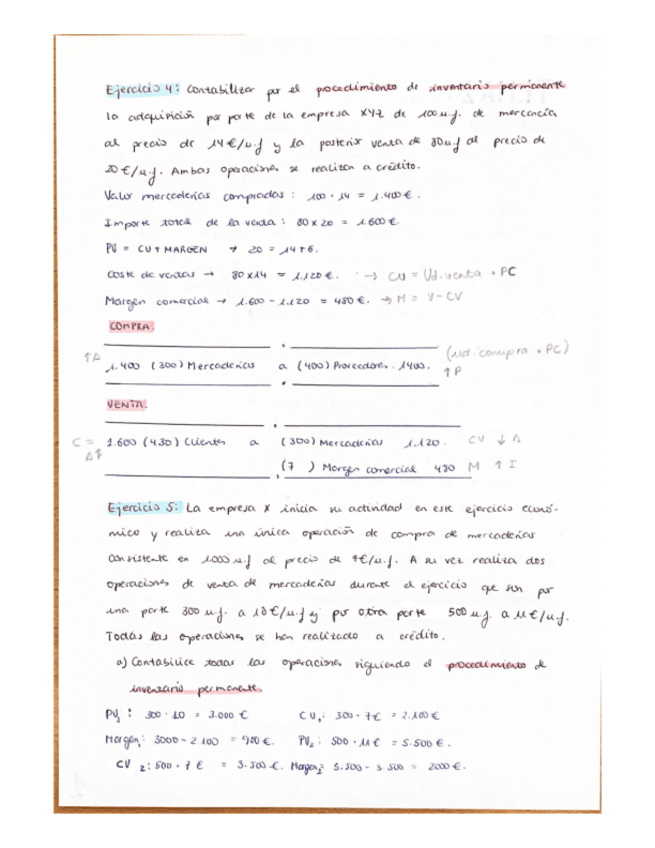 Ejercicio 4: Contabilizar por el procedimiento de inventario permanente
la adquisición por parte de la empresa XYZ de 100 u.f. de mercancía
al precio de 14€/u.f y la posterior venta de 80uf al precio de
20€/u.f. Ambas operaciones se realizan a crédito.
Valor mercaderías compradas: 100 · 14 = 1.400€.
Importe total de la venta: 80 x 20 = 1.600€
PV = CU + MARGEN → 20 = 14+6.
Coste de ventas → 80x14 = 1.120€. → CU = Ud. venta · PC
Margen comercial → 1.600 - 1.120 = 480€. → M = V - CV
COMPRA:
↑A 1.400 (300) Mercaderías a (400) Proveedores. 1400. (ud. compra · PC)
↑P
VENTA:
C = 1.600 (430) Clientes a (300) Mercaderías 1.120. CV ↓ A
A↑ (7 ) Margen comercial 430 M ↑ I
Ejercicio 5: La empresa X inicia su actividad en este ejercicio econó-
mico y realiza una única operación de compra de mercaderías
consistente en 1.000 u.f al precio de 7€/u.f. A su vez realiza dos
operaciones de venta de mercaderías durante el ejercicio que son por
una parte 300 u.f. a 10€/u.f y por otra parte 500 u.f. a 11€/u.f.
Todas las operaciones se han realizado a crédito.
a) Contabilice todas las operaciones siguiendo el procedimiento de
inventario permanente
PV₁: 300 · 10 = 3.000 € CV₁: 300 · 7€ = 2.100€
Margen₁: 3000 - 2.100 = 900€. PV₂: 500 · 11€ = 5.500€.
CV₂: 500 · 7€ = 3.500€. Margen₂: 5.500 - 3.500 = 2000€.